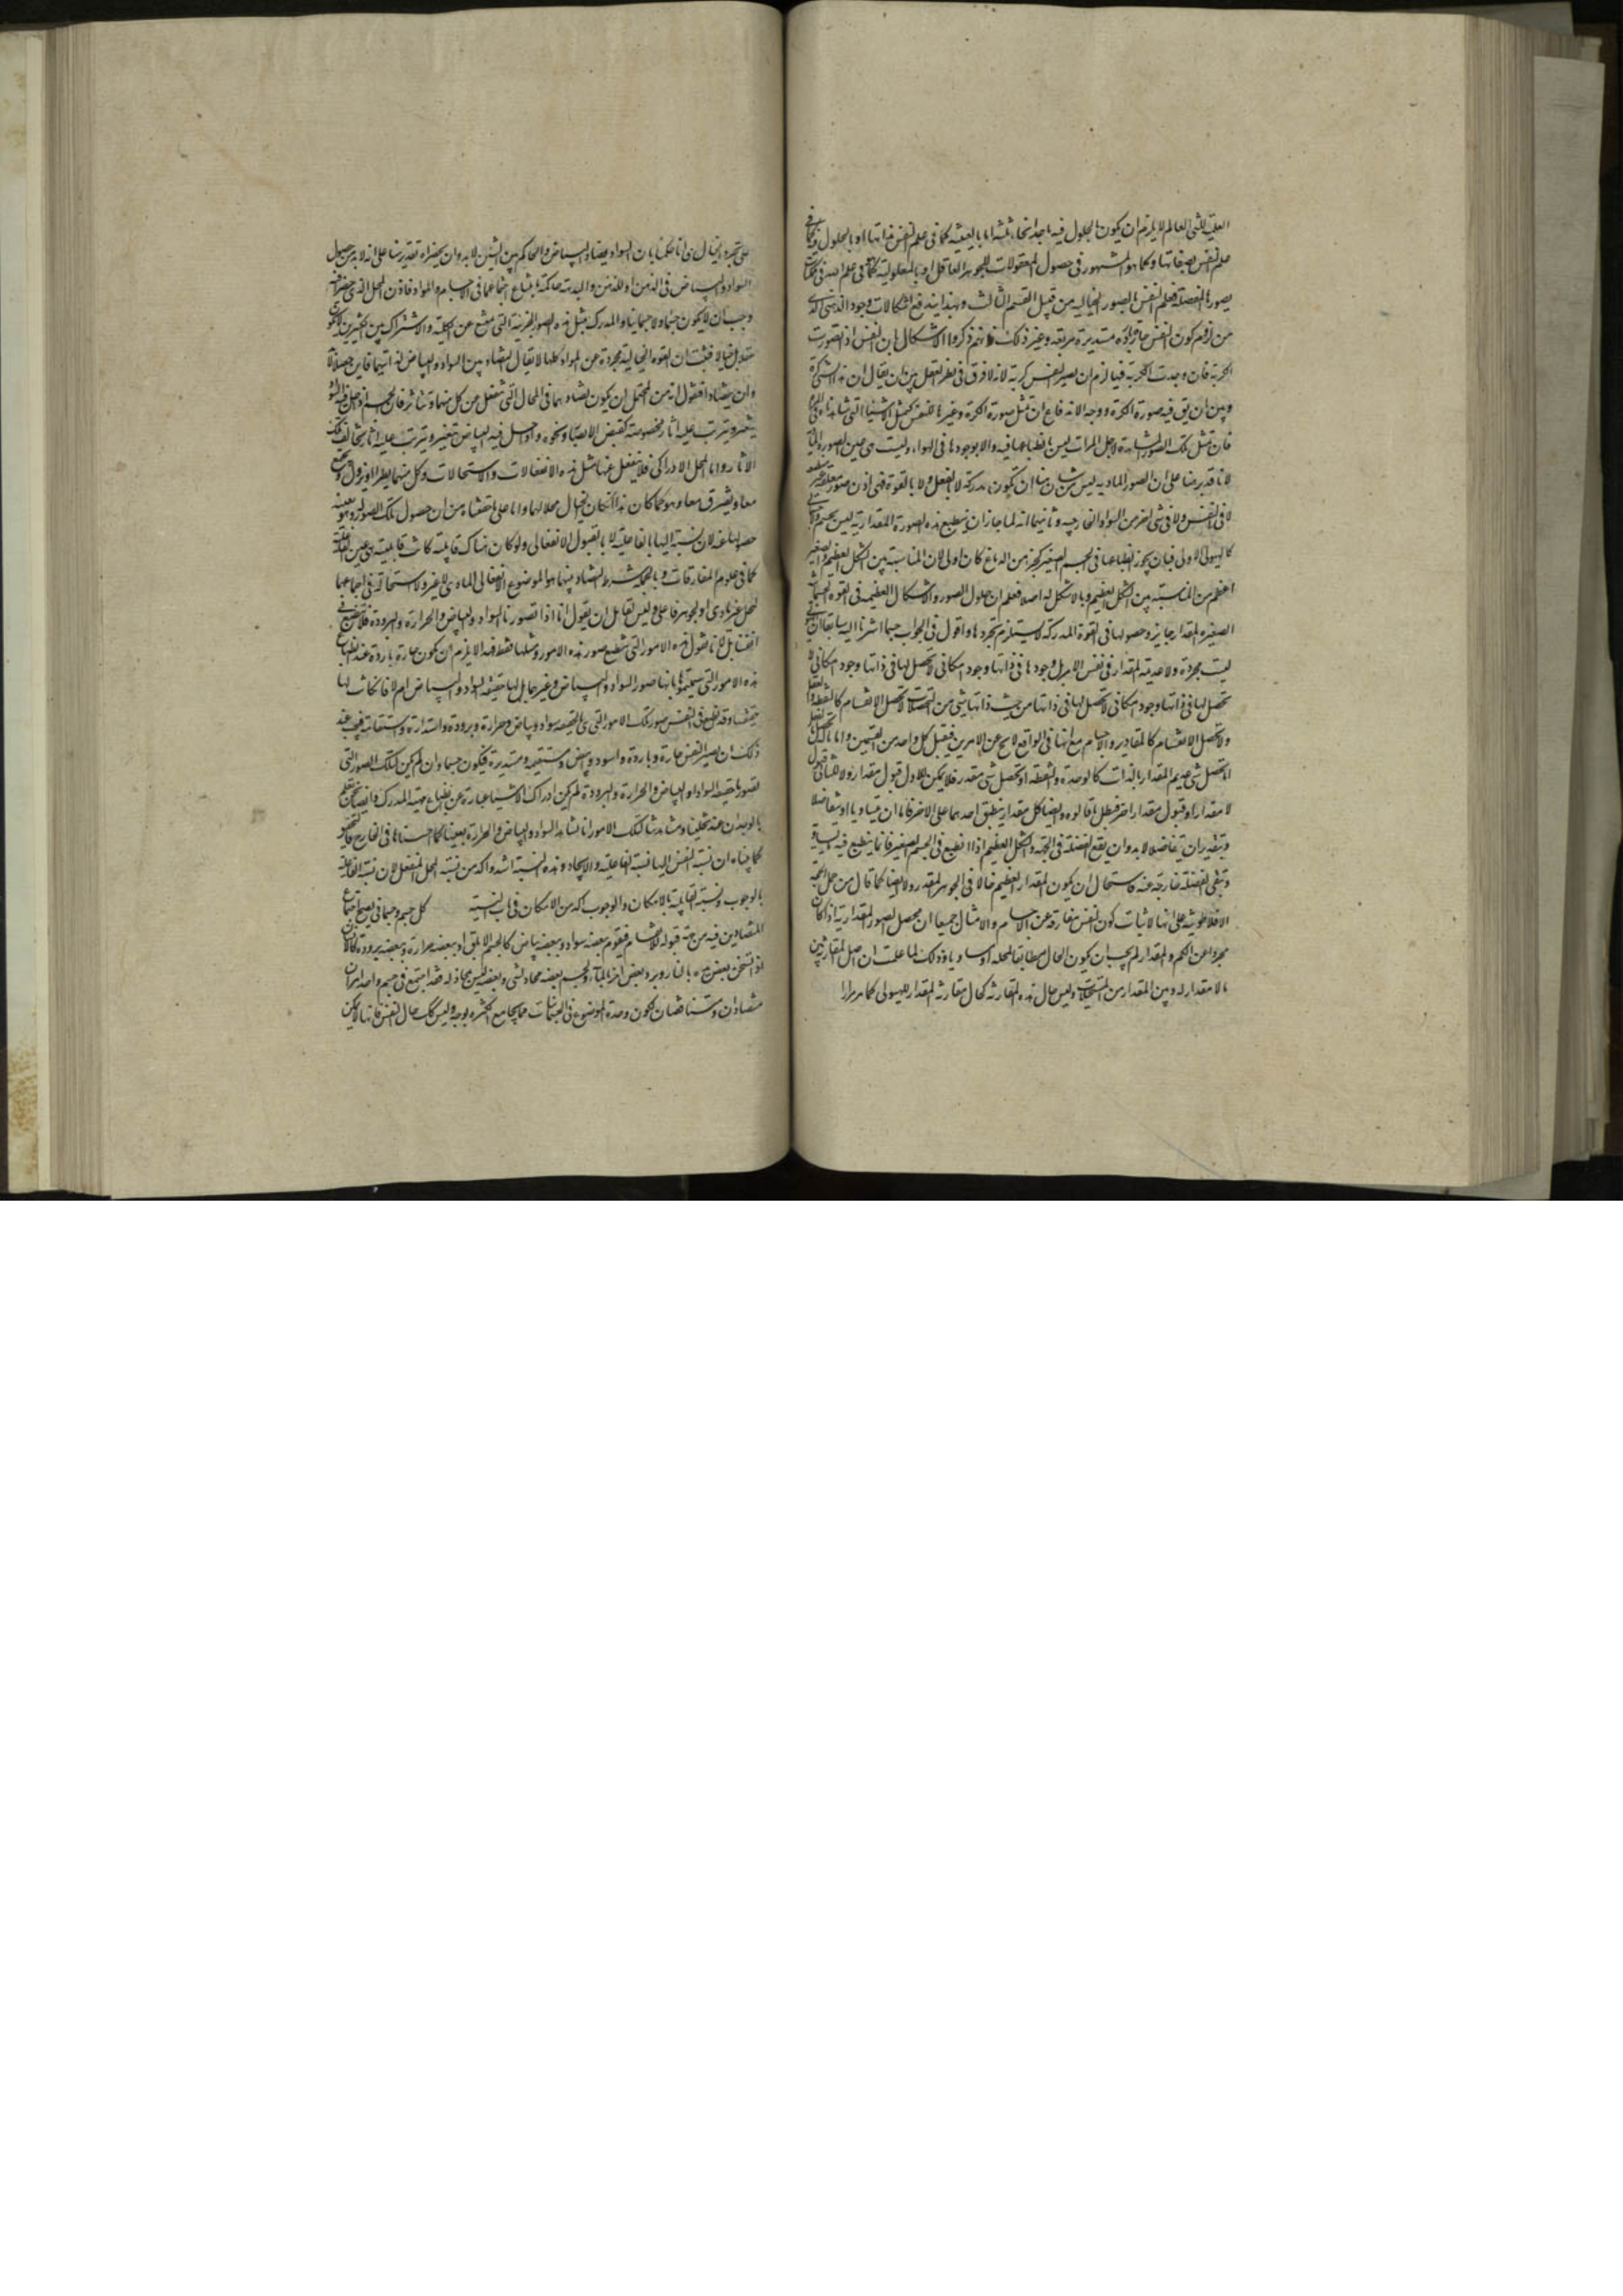 العلمية للشي العالم لا يلزم ان يكون بالحلول فيه باحد انحاء ثلثة اما بالعينية كما في علم النفس بذاتها او بالحلول فيه كما في
علم النفس بصفاتها وكما هو المشهور في حصول المعقولات للجوهر العاقل او بالمعلولية كما في علم الله في الممكنات
بصورها المفصلة فعلم النفس بالصور الخيالية من قبيل القسم الثالث وبهذا يندفع اشكالات وجود الذهني
من لزوم كون النفس حارة باردة مستديرة مربعة وغير ذلك فانهم ذكروا الاشكال بان النفس اذا تصورت
الكرية فان وجدت الكرية فيها لزم ان يصير النفس كرية لانه لا فرق في نظر العقل بين ان يقال ان هذا الشي كرة
وبين ان يق فيه صورة الكرة ووجه الاندفاع ان تمثل صورة الكرة وغيرها للنفس كتمثل الاشياء التي نشاهدها في المراة
فان تمثل تلك الصور المشاهدة لاجل المرات ليس بانطباعها فيه ولا بوجودها في الهواء وليست هي عين الصور المادية
لانا قد برهنا على ان الصور المادية ليس من شان منها ان تكون مدركة لا بالفعل ولا بالقوة فهي اذن صور معلقة
لا في النفس ولا في شي اخر من المواد الخارجية وثانيهما انه لما جاز ان ينطبع هذه الصورة المقدارية فيما ليس بجسم
كالهيولى الاولى فبان يجوز انطباعها في الجسم الصغير كجزء من الدماغ كان اولى لان المناسبة بين الشكل العظيم والصغير
اعظم من المناسبة بين الشكل العظيم وما لا شكل له اصلا فعلم ان حلول الصور والاشكال العظيمة في القوة الجسمانية
الصغيرة المقدار جايز وحصولها في القوة المدركة لا يستلزم تجردها واقول في الجواب حسبما اشرنا اليه سابقا ان الهيولى
ليست مجردة ولا عديمة المقدار في نفس الامر بل وجودها في ذاتها وجود امكاني لا تحصل لها في ذاتها وجود امكاني لا
تحصل لها في ذاتها وجود امكاني لا تحصل لها في ذاتها من حيث ذاتها بشي من التحصلات لا تحصل الانقسام كالنقطة والعقل
ولا تحصل الانقسام كالمقادير والاجسام مع انها في الواقع لا يخ عن الامرين فيقبل كل واحد من القسمين واما
المتحصل بشي عديم المقدار بالذات كالوحدة والنقطة او تحصل شي مقدر فلا يمكن للاول قبول مقدار ولا للثاني قبول
لا مقدار او قبول مقدار اخر فبطل ما قالوه وايضا كل مقدار ينطبق احدهما على الاخر فاما ان يتساويا او يتفاضلا
وبتقدير ان يتفاضلا لا بد وان يقع الفضلة في الجثة والشكل العظيم اذا انطبع في الجسم الصغير فانما ينطبع فيه ما يساويه
وتبقى الفضلة خارجة عنه فاستحال ان يكون المقدار العظيم حالا في الجوهر المقدر ولا ايضا كما قال من حمل الحجة
الافلاطونية على انها لاثبات كون النفس مفارقة عن الاجسام والامثال جميعا ان محصل الصور المقدارية اذا كان
مجردا عن الكم والمقدار لم يجب ان يكون الحال مطابقا لمحله او مساويا وذلك لما علمت ان اصل المقارنة بين
ما لا مقدار له وبين المقدار من المستحيلات وليس حال هذه المقارنة كحال مقارنة المقدار للهيولى كما مر مرارا
على تجرد الخيال هي انا حكمنا بان السواد يضاد البياض والحاكم بين الشيئين لا بد وان يحضراه فقد برهنا على انه لا بد من حصول
السواد والبياض في الذهن او للذهن والبديهة حاكمة بامتناع اجتماعهما في الاجسام والمواد فاذن المحل الذي حضرا فيه
وجب ان لا يكون جسما ولا جسمانيا والمدرك بمثل هذه الصور الجزئية التي يمتنع عن الكلية والاشتراك بين كثيرين لا يكون
عقلا بل خيالا فثبت ان القوة الخيالية مجردة عن المواد كلها لا يقال التضاد بين السواد والبياض لذاتيهما فاين حصلا
وان يتضادا فنقول انه من المحتمل ان يكون تضادهما في المحال التي تنفعل من كل منهما وتتاثر فان الجسم اذا حل فيه السواد
يتغير وترتب عليه اثار مخصوصة كقبض الابصار ونحوه واذا حل فيه البياض تغير وترتب عليه اثار يخالف تلك
الاثار واما المحل الادراكي فلا ينفعل عنها مثل هذه الانفعالات والاستحالات وكل منهما يطرء او يزول ويجتمع
معا ويفترق معا وهو كما كان هذا ان كان الخيال محلا لهما واما على ما حققناه من ان حصول تلك الصور له هو بعينه
حصولها عنه لان نسبته اليها بالفاعلية لا بالقبول الانفعالي ولو كان هناك قابلية كانت قابليته هي عين الفاعلية
كما في علوم المفارقات وبالجملة شرط التضاد بينهما هو الموضوع الانفعالي المادي لا غير ولا استحالة في اجتماعهما
لمحل غير مادي او لجوهر فاعلي وليس لقائل ان يقول انا اذا تصورنا السواد والبياض والحرارة والبرودة فلا ينطبع في
انفسنا بل لا نقول هذه الامور التي ينطبع صور هذه الامور ومثلها فقط فلهذا لا يلزم ان يكون حارة باردة عند انطباع
هذه الامور التي سميتموها بانها صور السواد والبياض وغيرهما هل لها حقيقة السواد والبياض ام لا فان كانت لها
حقيقتها وقد انطبع في النفس صور تلك الامور التي هي بالحقيقة سواد وبياض وحرارة وبرودة واستدارة واستقامة فيجب عند
ذلك ان يصير النفس حارة وباردة واسود وابيض ومستقيمة ومستديرة فيكون جسما وان لم يكن لتلك الصور التي
تصورناها حقيقة السواد والبياض والحرارة والبرودة لم يكن ادراك الاشياء عبارة عن انطباع ماهية المدرك وايضا نحن نعلم
بالوجدان عند تخيلنا ومشاهدتنا لتلك الامور انا نشاهد السواد والبياض والحرارة بعينها كما احسسناها في الخارج
كما بيناه ان نسبة النفس اليها نسبة الفاعلية والايجاد وهذه النسبة اشد واكد من نسبة المحل المنفعل لان نسبة الفاعلية
بالوجوب ونسبة القابلية بالامكان والوجوب اكد من الامكان في باب النسبة كل جسم وجسماني يصح اجتماع
المتضادين فيه من جهة قبوله للانقسام فيقوم ببعضه سواد وببعضه بياض كالجسم الابلق او ببعضه حرارة وببعضه برودة كالانسان
اذا تسخن بعض بدنه بالنار وبرد بعض اخر بالماء والجسم بعضه محاذ لشي وبعضه ليس محاذ له فقد اجتمع في جسم واحد امران
متضادان ومتناقضان لكون وحدة الموضوع في الجسمانيات مما يجامع الكثرة بوجه وليس كك حال النفس فانها لا يمكن